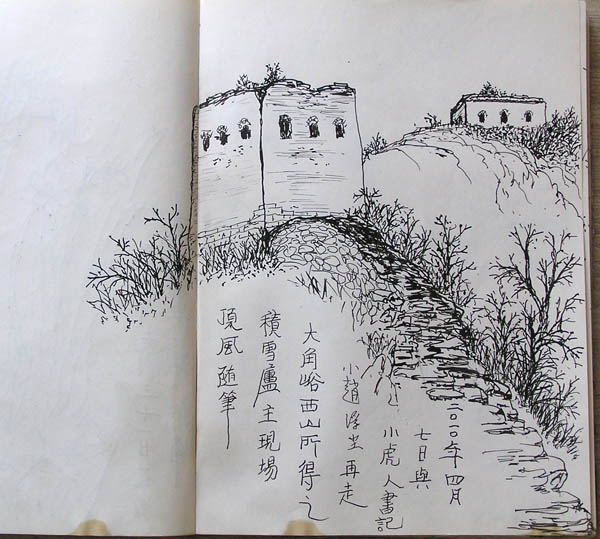 二〇一〇年四月
七日與
小虎人書記
小趙再走
大角峪西山所得之
積雪廬主現場
頂風隨筆